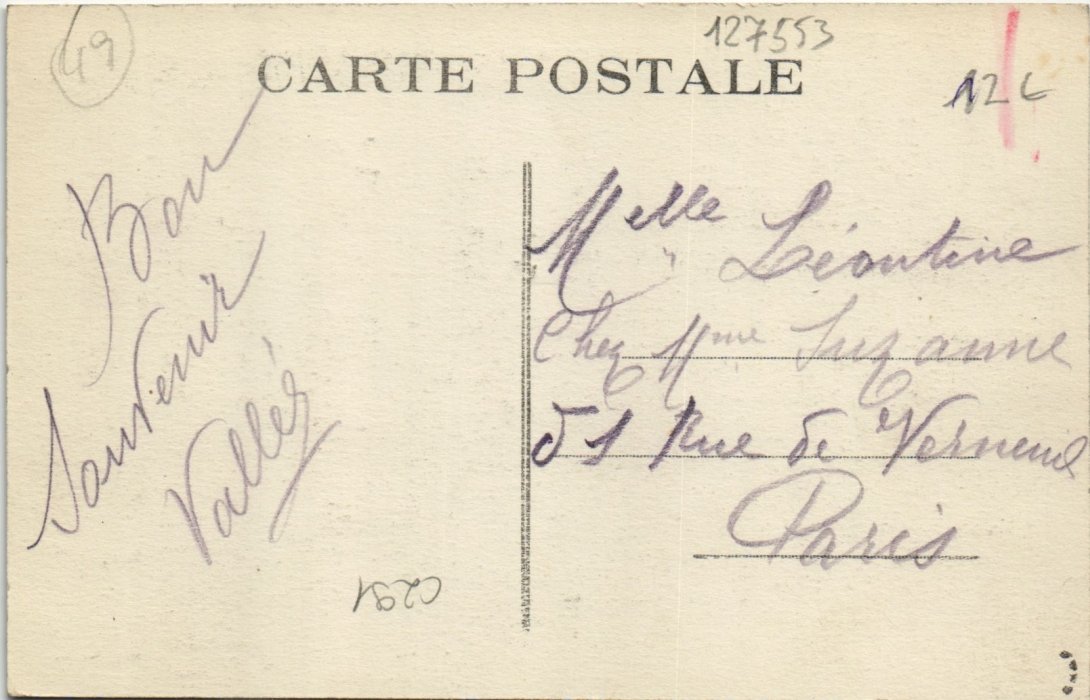 49
127553
CARTE POSTALE
12 €
Bon
Souvenir
Vallée
Melle Léontine
Chez Mme Suzanne
51 Rue de Verneuil
Paris